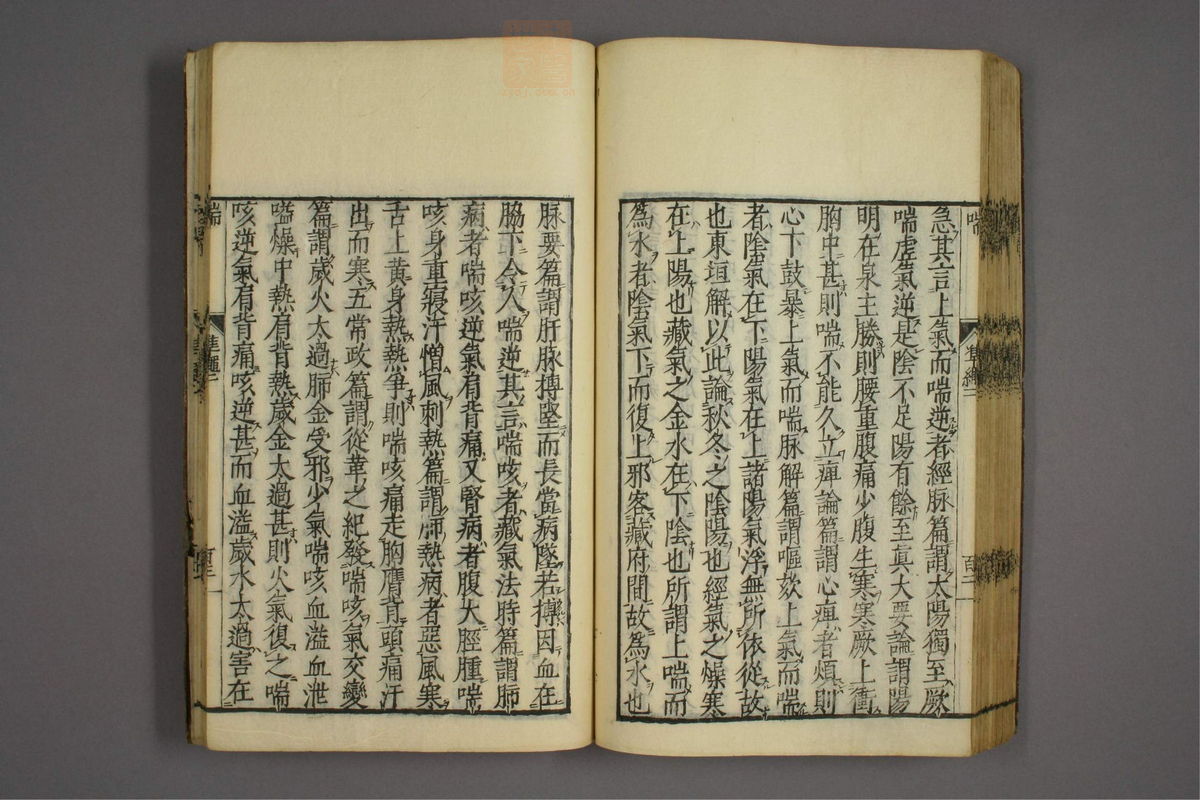 喘
急其言上氣而喘逆者經脉篇謂太陽獨至厥
喘虛氣逆是陰不足陽有餘至眞大要論謂陽
明在泉主勝則腰重腹痛少腹生寒寒厥上衝
胸中甚則喘不能久立痺論篇謂心痺者煩則
心下鼓暴上氣而喘脉解篇謂嘔欬上氣而喘
者陰氣在下陽氣在上諸陽氣浮無所依從故
也東垣解以此論秋冬之陰陽也經氣之燥寒
在上陽也藏氣之金水在下陰也所謂上喘而
爲水者陰氣下而復上邪客藏府間故爲水也
脉要篇謂肝脉搏堅而長當病墜若搏因血在
脇下令人喘逆其言喘咳者藏氣法時篇謂肺
病者喘咳逆氣肩背痛又腎病者腹大脛腫喘
咳身重寢汗憎風刺熱篇謂肺熱病者惡風寒
舌上黃身熱熱爭則喘咳痛走胸膺背頭痛汗
出而寒五常政篇謂從革之紀發喘咳氣交變
篇謂歲火太過肺金受邪少氣喘咳血溢血泄
嗌燥中熱肩背熱歲金太過甚則火氣復之喘
咳逆氣肩背痛咳逆甚而血溢歲水太過害在
喘